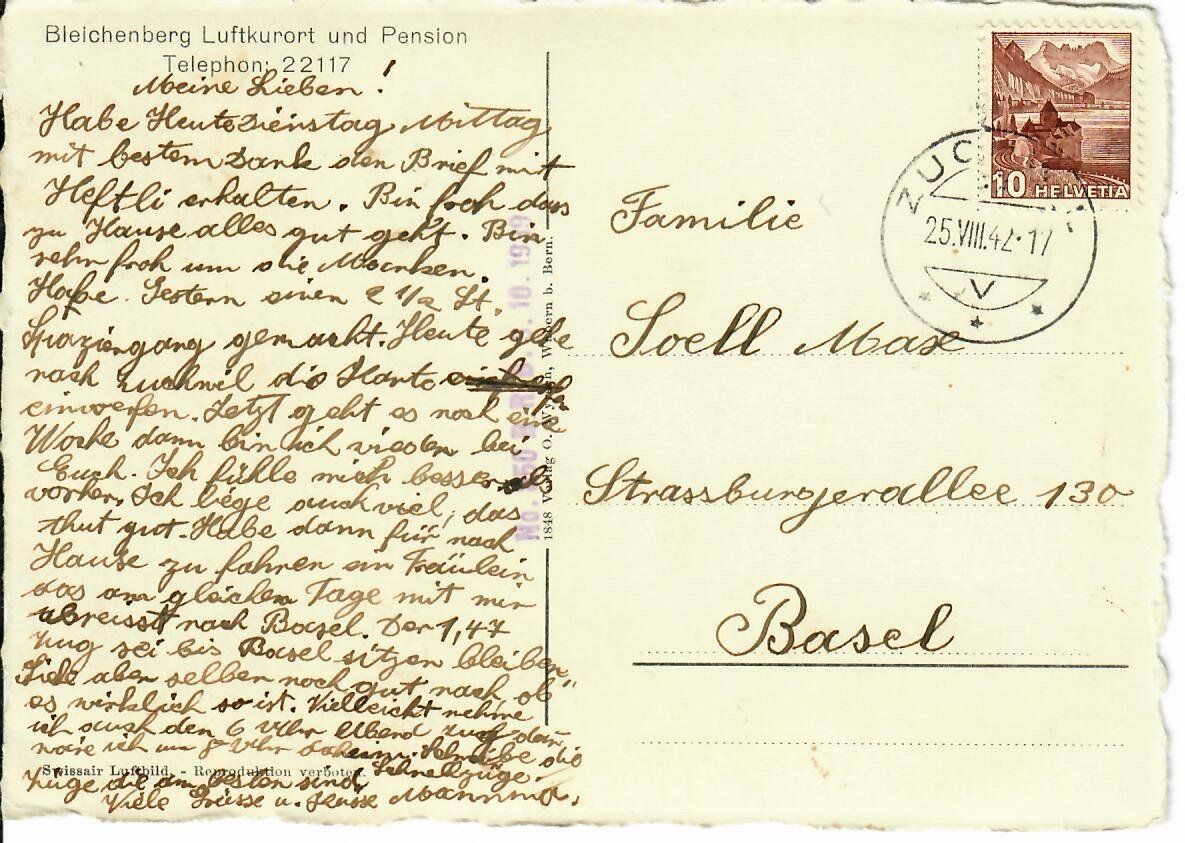 Bleichenberg Luftkurort und Pension
Telephon: 22117
Meine Lieben!
Habe Heute Dienstag Mittag
mit bestem Dank den Brief mit
Heftli erhalten. Bin froh das
zu Hause alles gut geht. Bin
sehr froh um die Marken.
Habe Gestern einen 2 1/2 St.
Spaziergang gemacht. Heute gehe
nach Zuchwil die Karte
einwerfen. Jetzt geht es noch eine
Woche dann bin ich wieder bei
Euch. Ich fühle mich besser als
vorher. Ich lige auch viel, das
thut gut. Habe dann für nach
Hause zu fahren ein Fräulein
das am gleichen Tage mit mir
abreisst nach Basel. Der 1,47
Zug sei bis Basel sitzen bleiben
aber selben noch gut nach, ob
es wirklich so ist. Vielleicht nehme
ich auch den 6 Uhr Abend Zug dan
wäre ich um 8 Uhr daheim. Schreibe die
Schnellzüge.
Züge die am besten sind
Viele Grüsse u. Küsse Mamma.
Swissair Luftbild. - Reproduktion verboten.
1848 Verlag O. Wyss, b. Bern.
10.1939
10 HELVETIA
25.VIII.42-17
V
Familie
Soell Max
Strassburgerallee 130
Basel